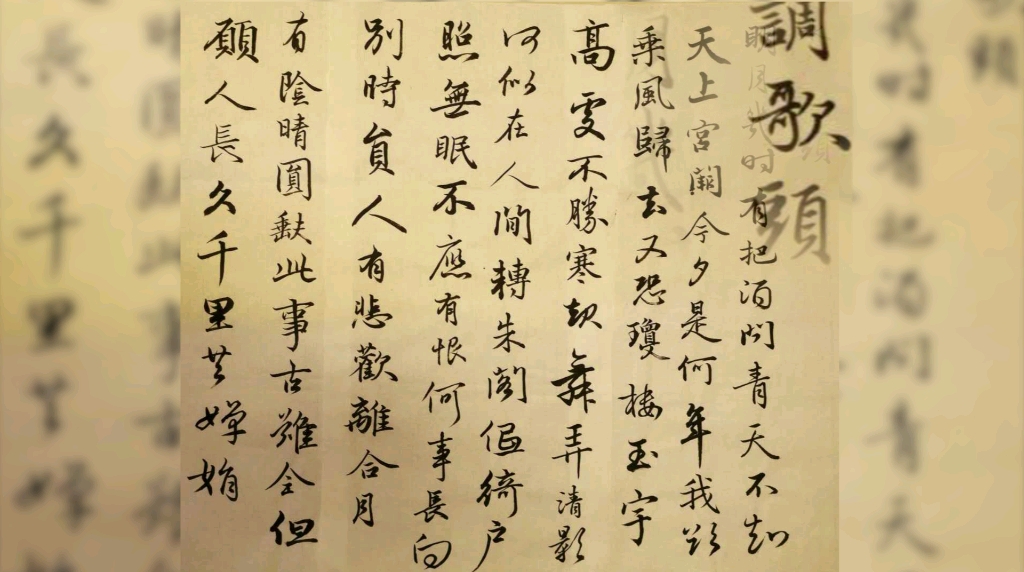 調歌頭
明月幾时有把酒問青天不知
天上宮闕今夕是何年我欲
乘風歸去又恐瓊樓玉宇
高處不勝寒起舞弄清影
何似在人間轉朱閣低綺户
照無眠不應有恨何事長向
别時圓人有悲歡離合月
有陰晴圓缺此事古難全但
願人長久千里共嬋娟